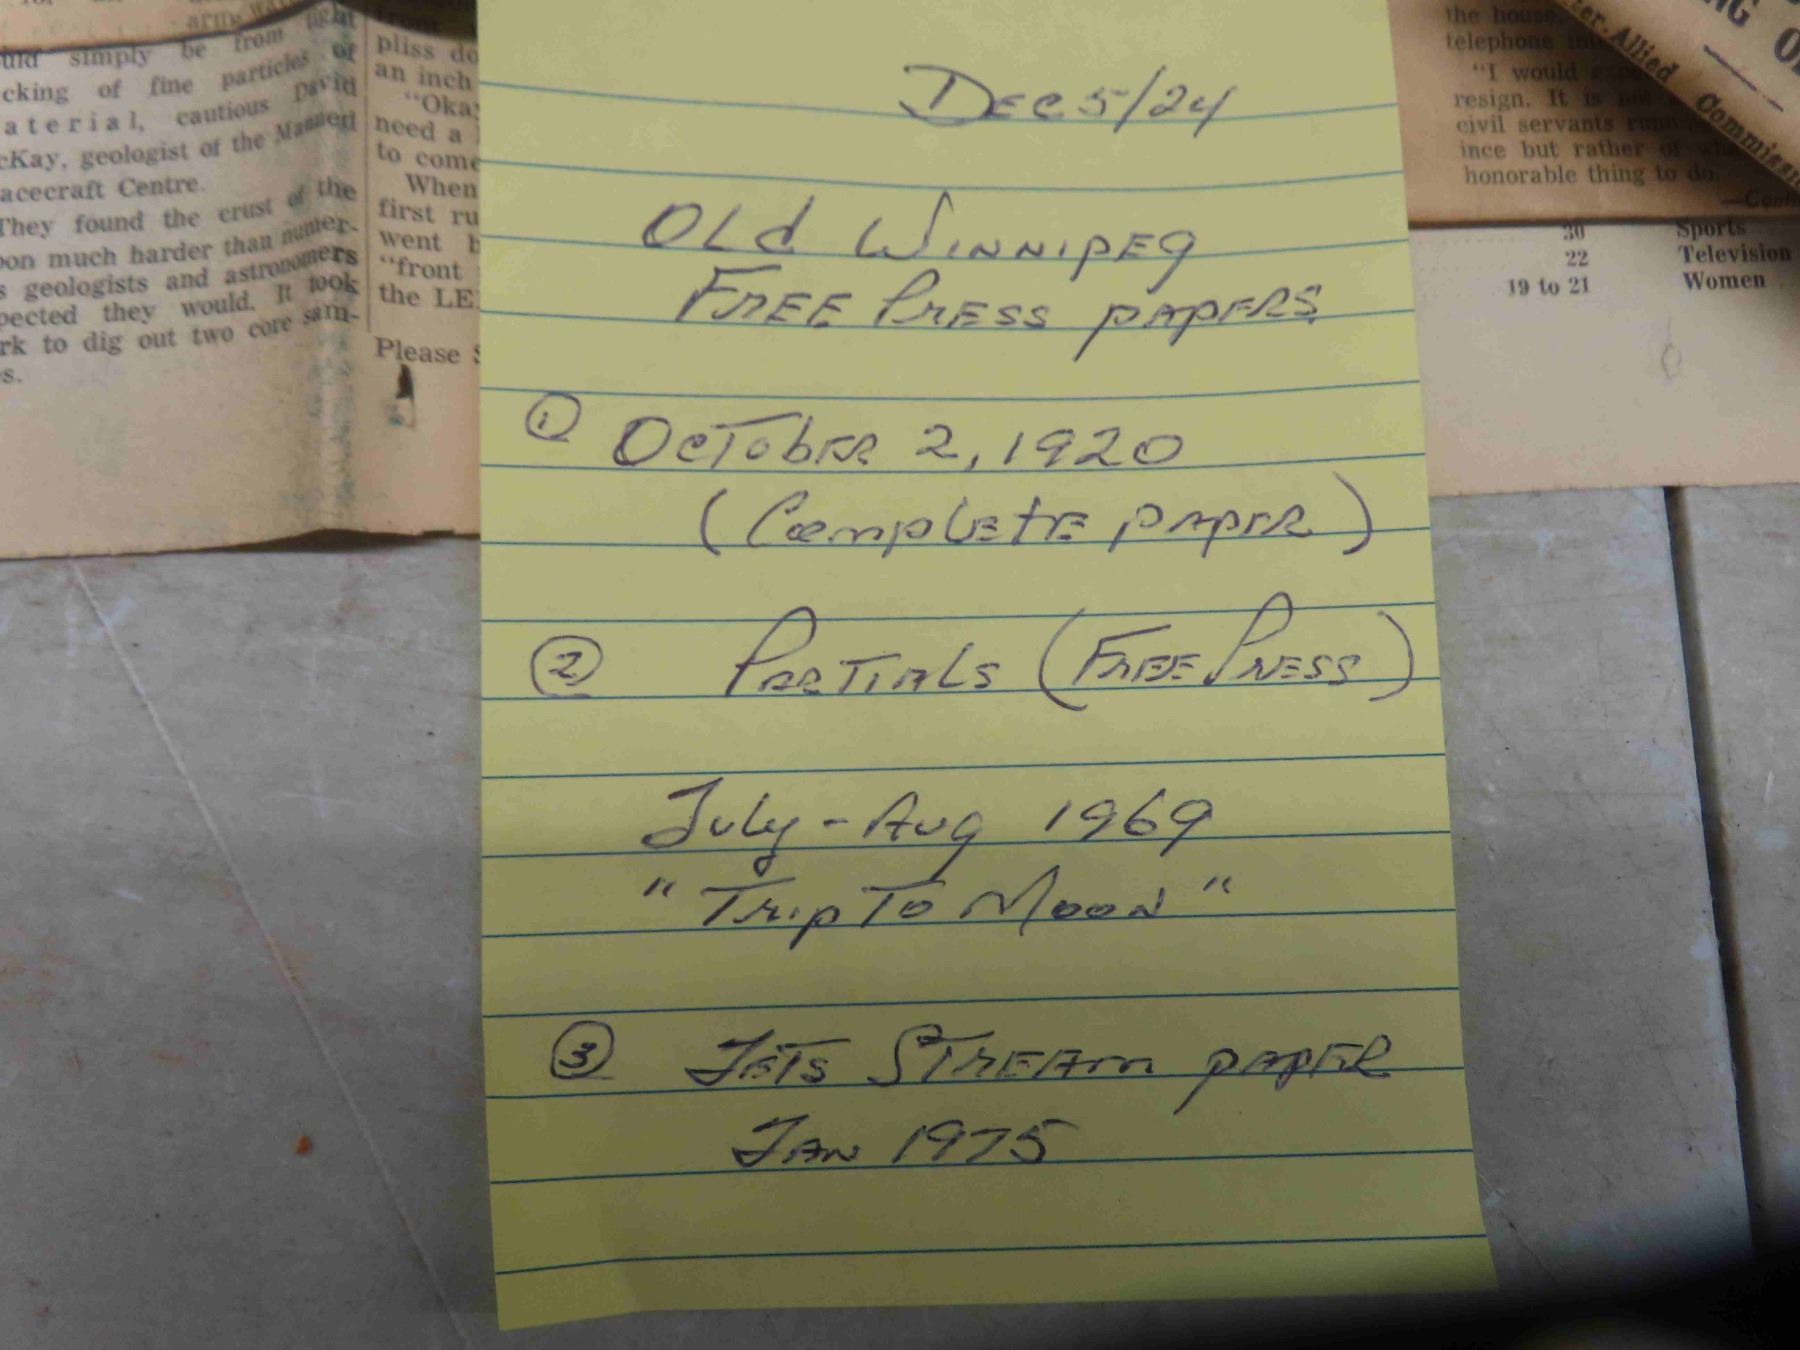 arms way
light
simply be from
cking of fine particles of
aterial, cautious David
cKay, geologist of the Manned
acecraft Centre.
They found the crust of the
oon much harder than numer-
s geologists and astronomers
pected they would. It took
rk to dig out two core sam-
s.
from
pliss do
an inch
"Oka
need a
to come
When
first ru
went b
"front
the LE
Please
Dec 5/24
Old Winnipeg
Free Press papers
① October 2, 1920
(Complete paper)
② Partials (Free Press)
July - Aug 1969
"Trip To Moon"
③ Jets Stream paper
Jan 1975
the house,
telephone
"I would
resign. It is not
civil servants
ince but rather of
honorable thing to do.
30 Sports
22 Television
19 to 21 Women
ter-Allied Commiss
NG O